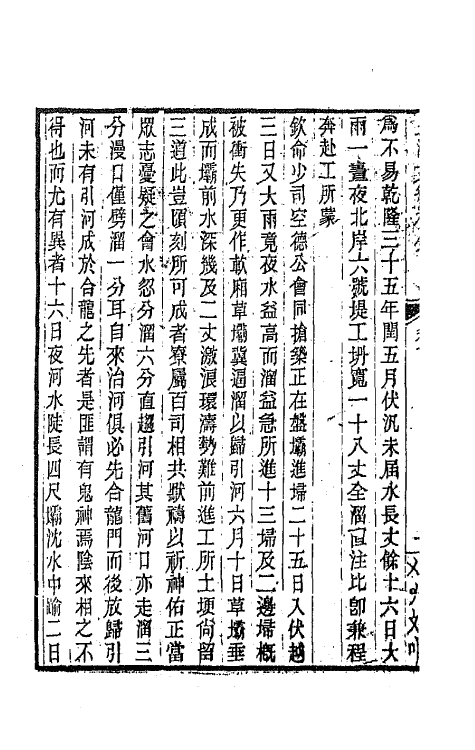 爲不易乾隆三十五年閏五月伏汛未届水長丈餘十六日大
雨一晝夜北岸六號堤工坍寬一十八丈全溜直注比卽兼程
奔赴工所蒙
欽命少司空德公會同搶築正在盤壩進埽二十五日入伏越
三日又大雨竟夜水益高而溜益急所進十三埽及二邊埽概
被衝失乃更作軟廂草壩冀逼溜以歸引河六月十日草壩垂
成而壩前水深幾及二丈激浪環濤勢難前進工所土埂尙留
三道此豈頃刻所可成者寮屬百司相共默禱以祈神佑正當
眾志憂疑之會水忽分溜六分直趨引河其舊河口亦走溜三
分漫口僅劈溜一分耳自來治河俱必先合龍門而後放歸引
河未有引河成於合龍之先者是匪謂有鬼神焉陰來相之不
得也而尤有異者十六日夜河水陡長四尺壩沈水中踰二日